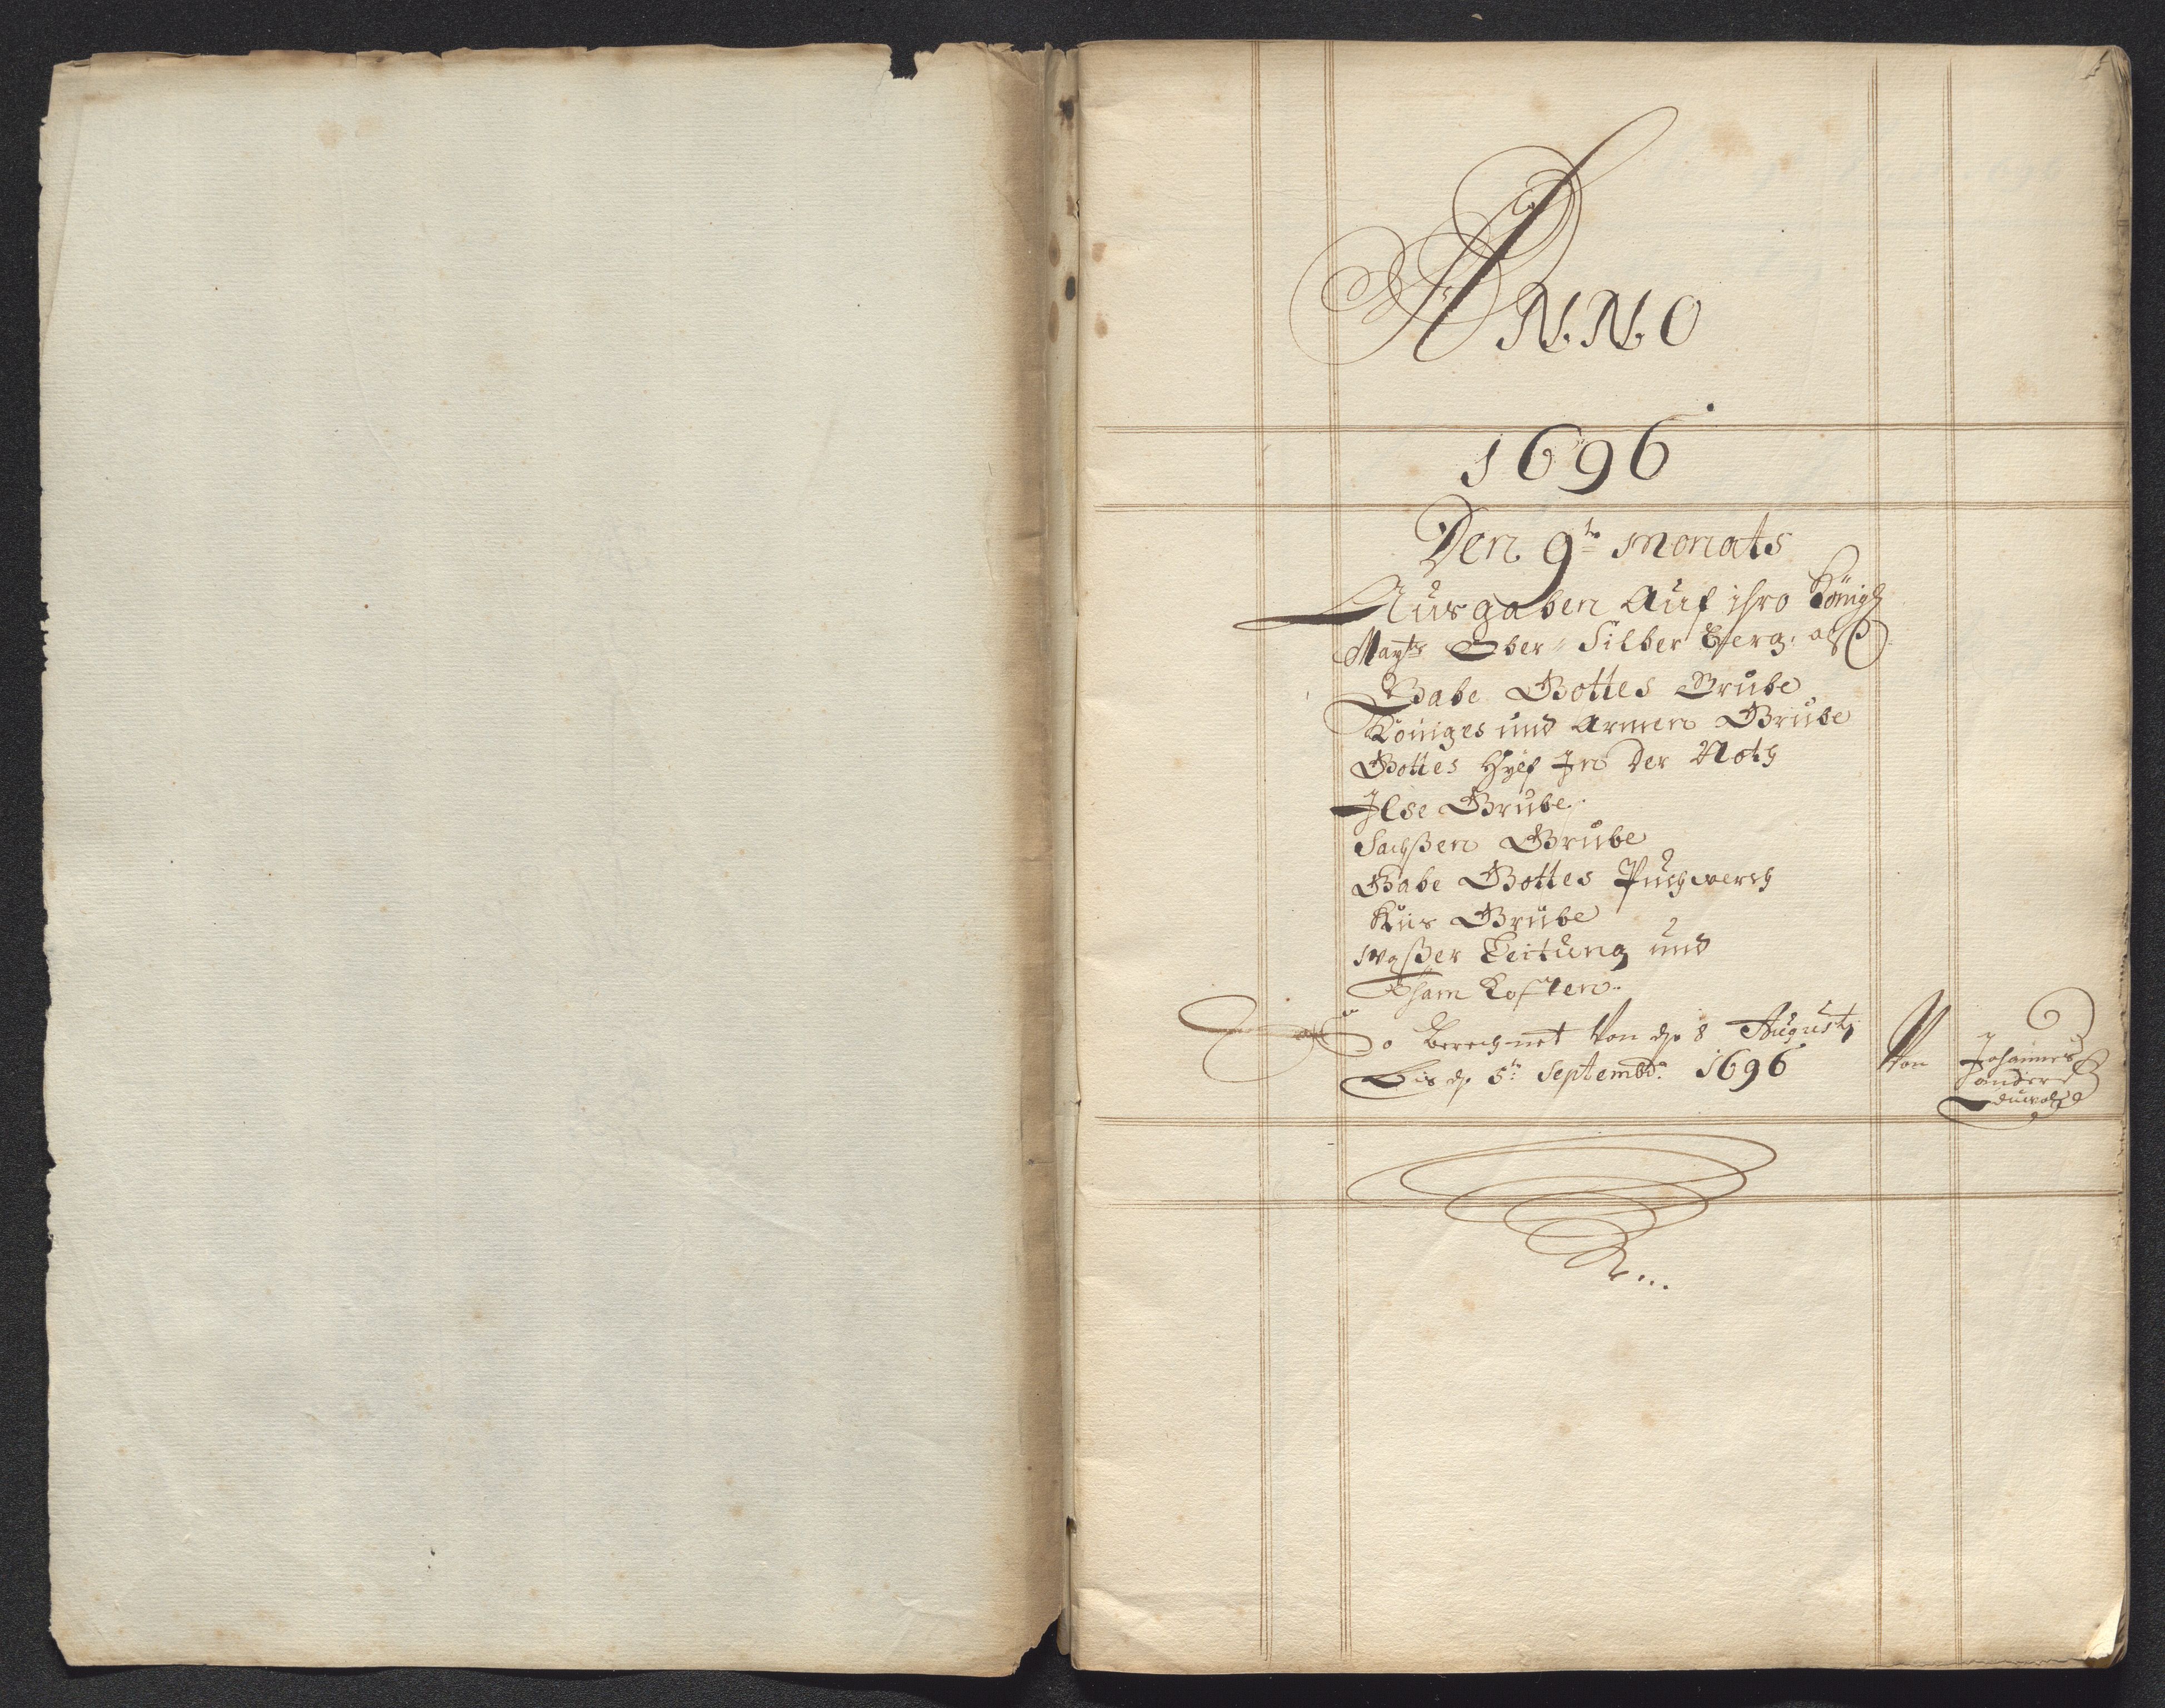 ANNO
1696
Den 9te Monats
Ausgaben Auf ihro Königl
Maytts Ober- Silber Berg: alß
Gabe Gottes Grube
Königes und Armen Grube
Gottes Hülf In der Noth
Ilse Grube.
Sachßen Grube
Gabe Gottes Puchwerch
Kiis Grube
Waßer Leitung und
Tham Kosten.
So Berechnet Von den 8 Augusti
Bis den 5tn Septembr: 1696
Von Johannes